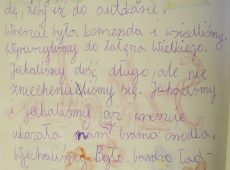 dę, żeby iść do autokaru.
Wreszcie była komenda i wsiedliśmy.
Wyruszyliśmy do Załęcza Wielkiego.
Jechaliśmy dość długo, ale nie
zniechęcaliśmy się. Jechaliśmy
i jechaliśmy aż wreszcie
ukazała nam brama ośrodka.
Wjechaliśmy. Było bardzo ład-